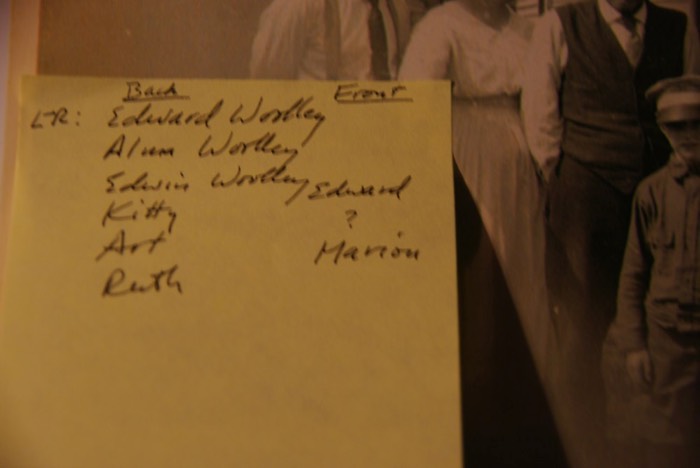 Back Front
L-R: Edward Woolley
Alma Woolley
Edwin Woolley Edward
Kitty ?
Art Marion
Ruth